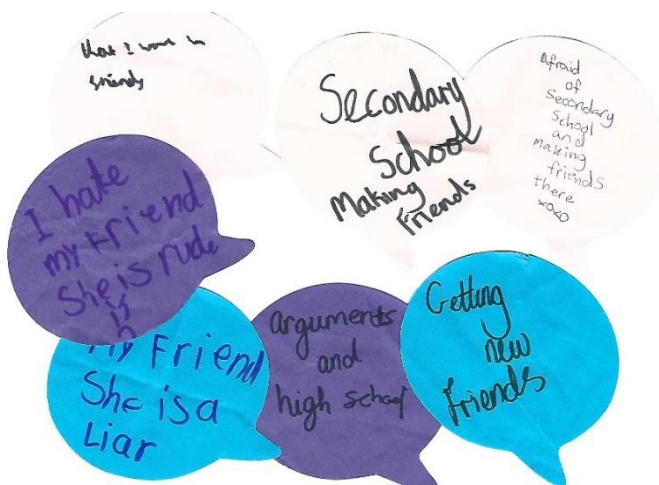 that I
friends
Secondary
School
Making
Friends
Afraid
of
Secondary
School
and
making
friends
there
xoxo
I hate
my Friend
She is rude
My Friend
She is a
Liar
arguments
and
high school
Getting
new
Friends